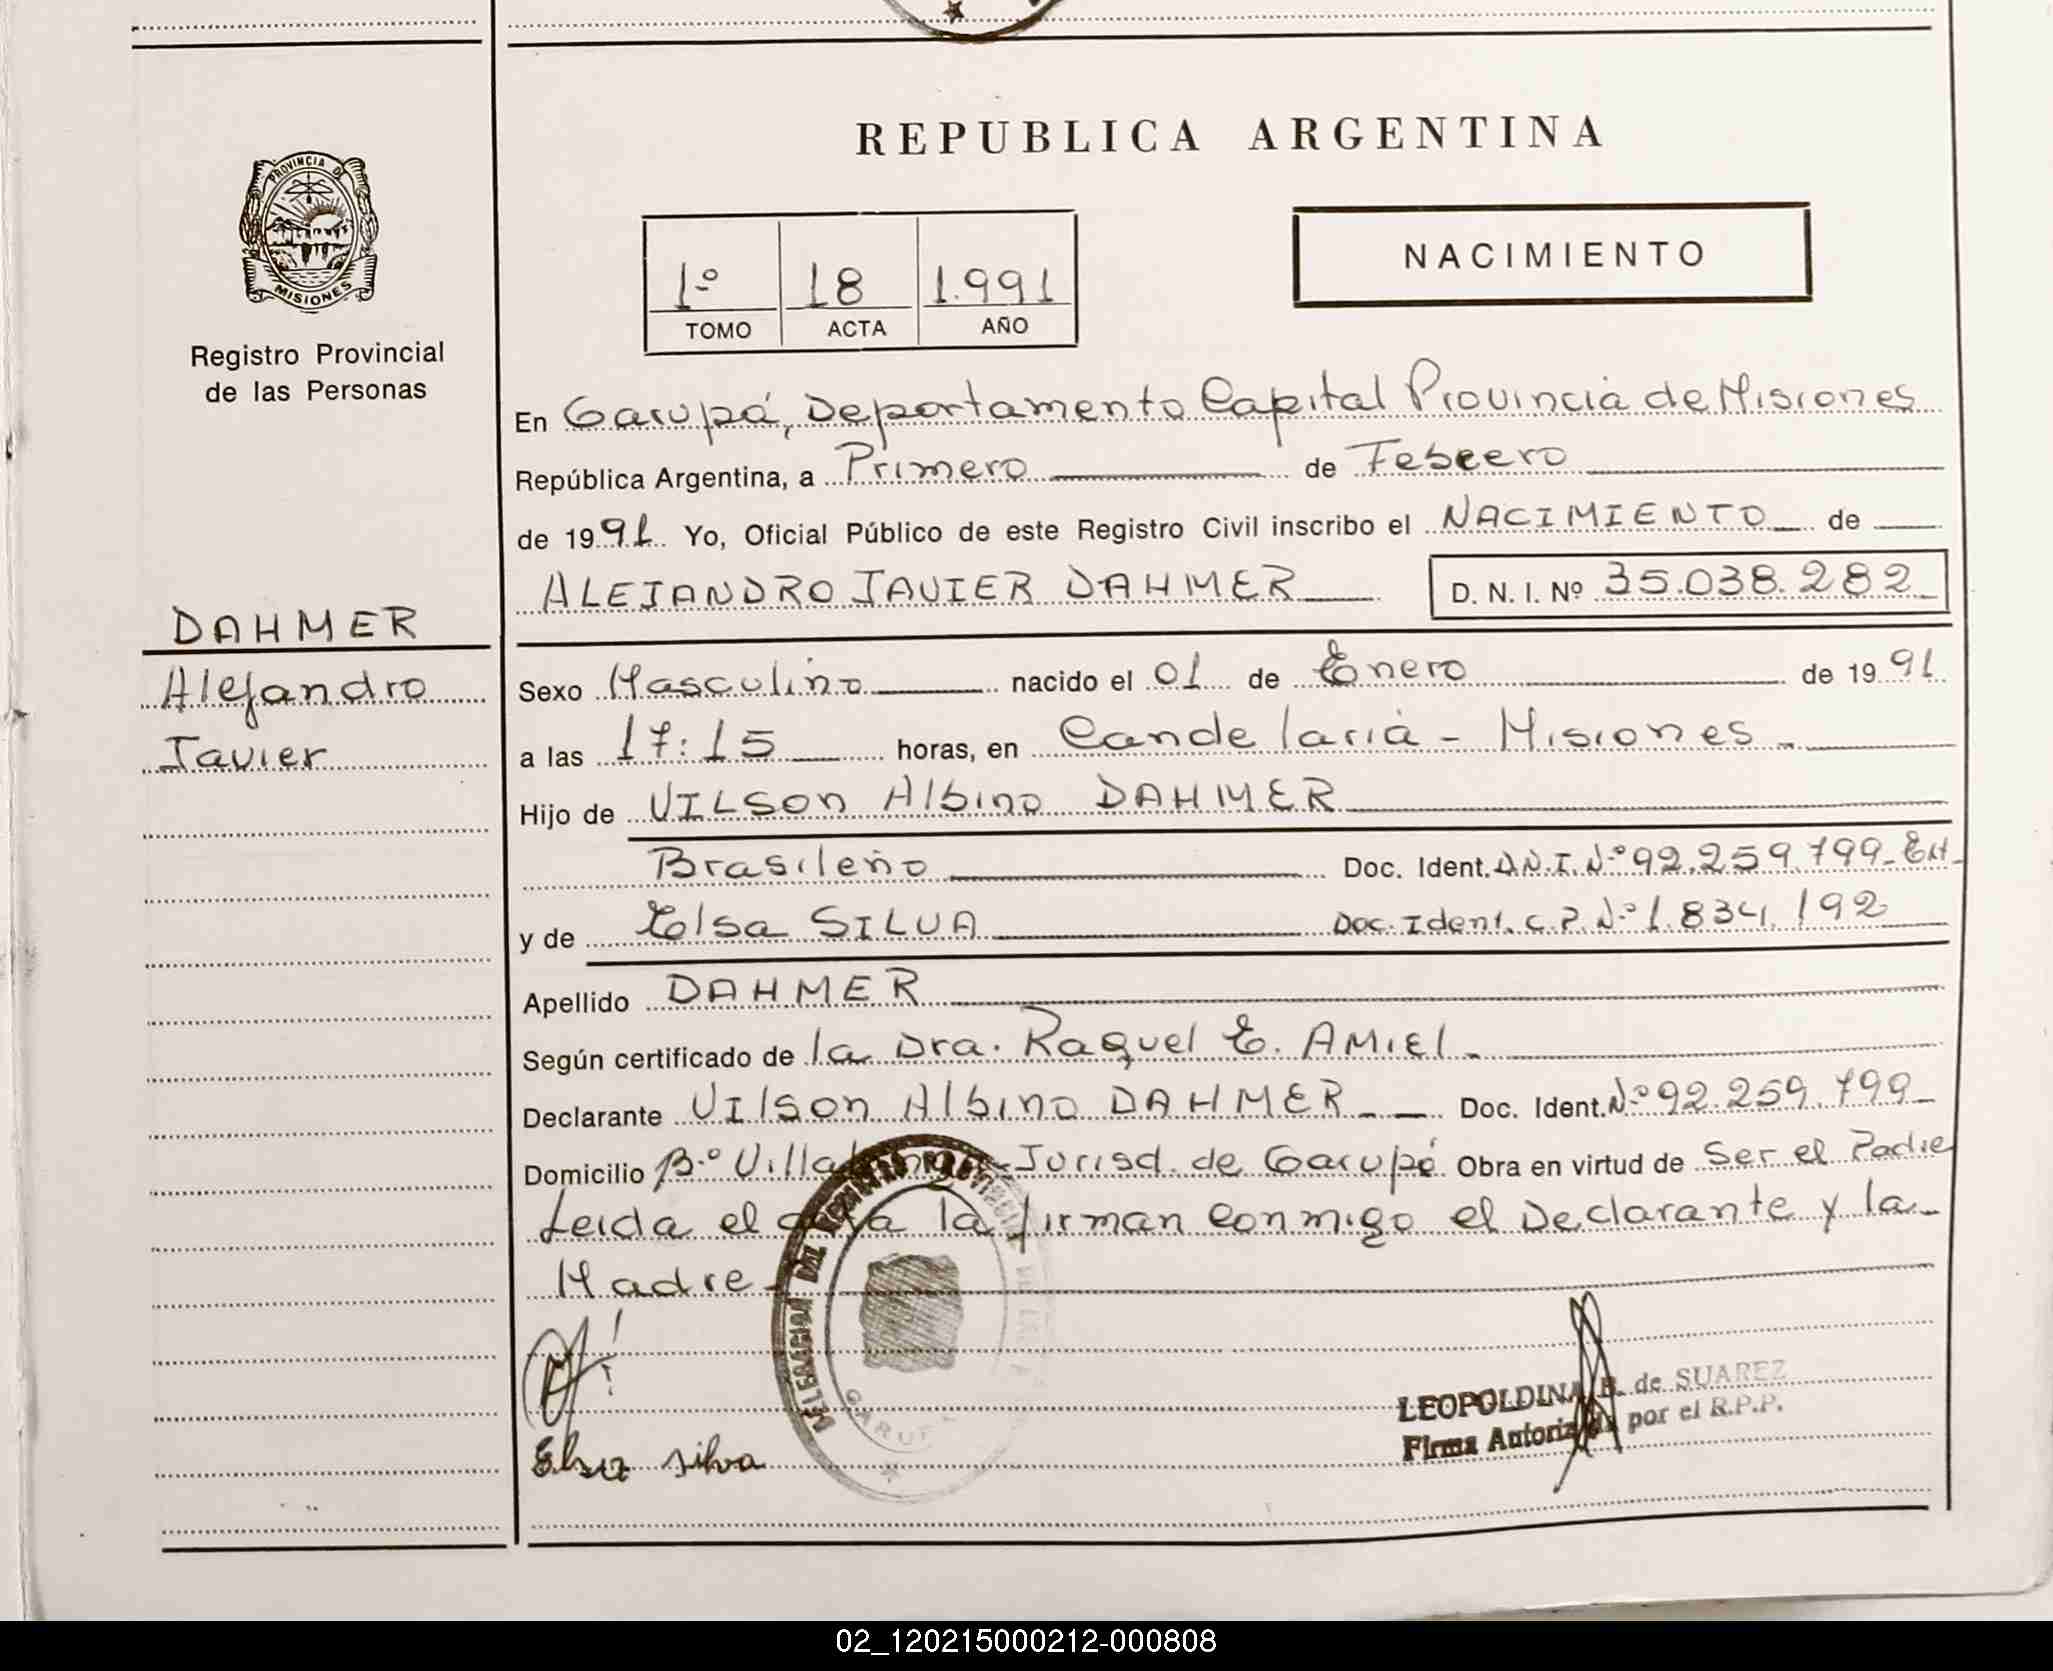 PROVINCIA DE
MISIONES
Registro Provincial
de las Personas
DAHMER
Alejandro
Javier
REPUBLICA ARGENTINA
1º 18 1.991
TOMO ACTA AÑO
NACIMIENTO
En Garupá, Departamento Capital Provincia de Misiones
República Argentina, a Primero de Febrero
de 1991 Yo, Oficial Público de este Registro Civil inscribo el NACIMIENTO de
ALEJANDRO JAVIER DAHMER D. N. I. Nº 35.038.282
Sexo Masculino nacido el 01 de Enero de 1991
a las 17:15 horas, en Candelaria - Misiones
Hijo de VILSON Albino DAHMER
Brasileño Doc. Ident. D.N.I. Nº 92.259.799 - Ext
y de Elsa SILVA Doc. Ident. C.P. Nº 1.834.192
Apellido DAHMER
Según certificado de la Dra. Raquel E. AMIEL
Declarante VILSON Albino DAHMER Doc. Ident. Nº 92.259.799
Domicilio Bº Villa Jurisd. de Garupá Obra en virtud de Ser el Padre
Leida el acta la firman conmigo el Declarante y la
Madre -
DELEGACION DEL REGISTRO PROVINCIAL DE LAS
GARUP
LEOPOLDINA B. de SUAREZ
Firma Autorizada por el R.P.P.
Elsa silva
02_120215000212-000808